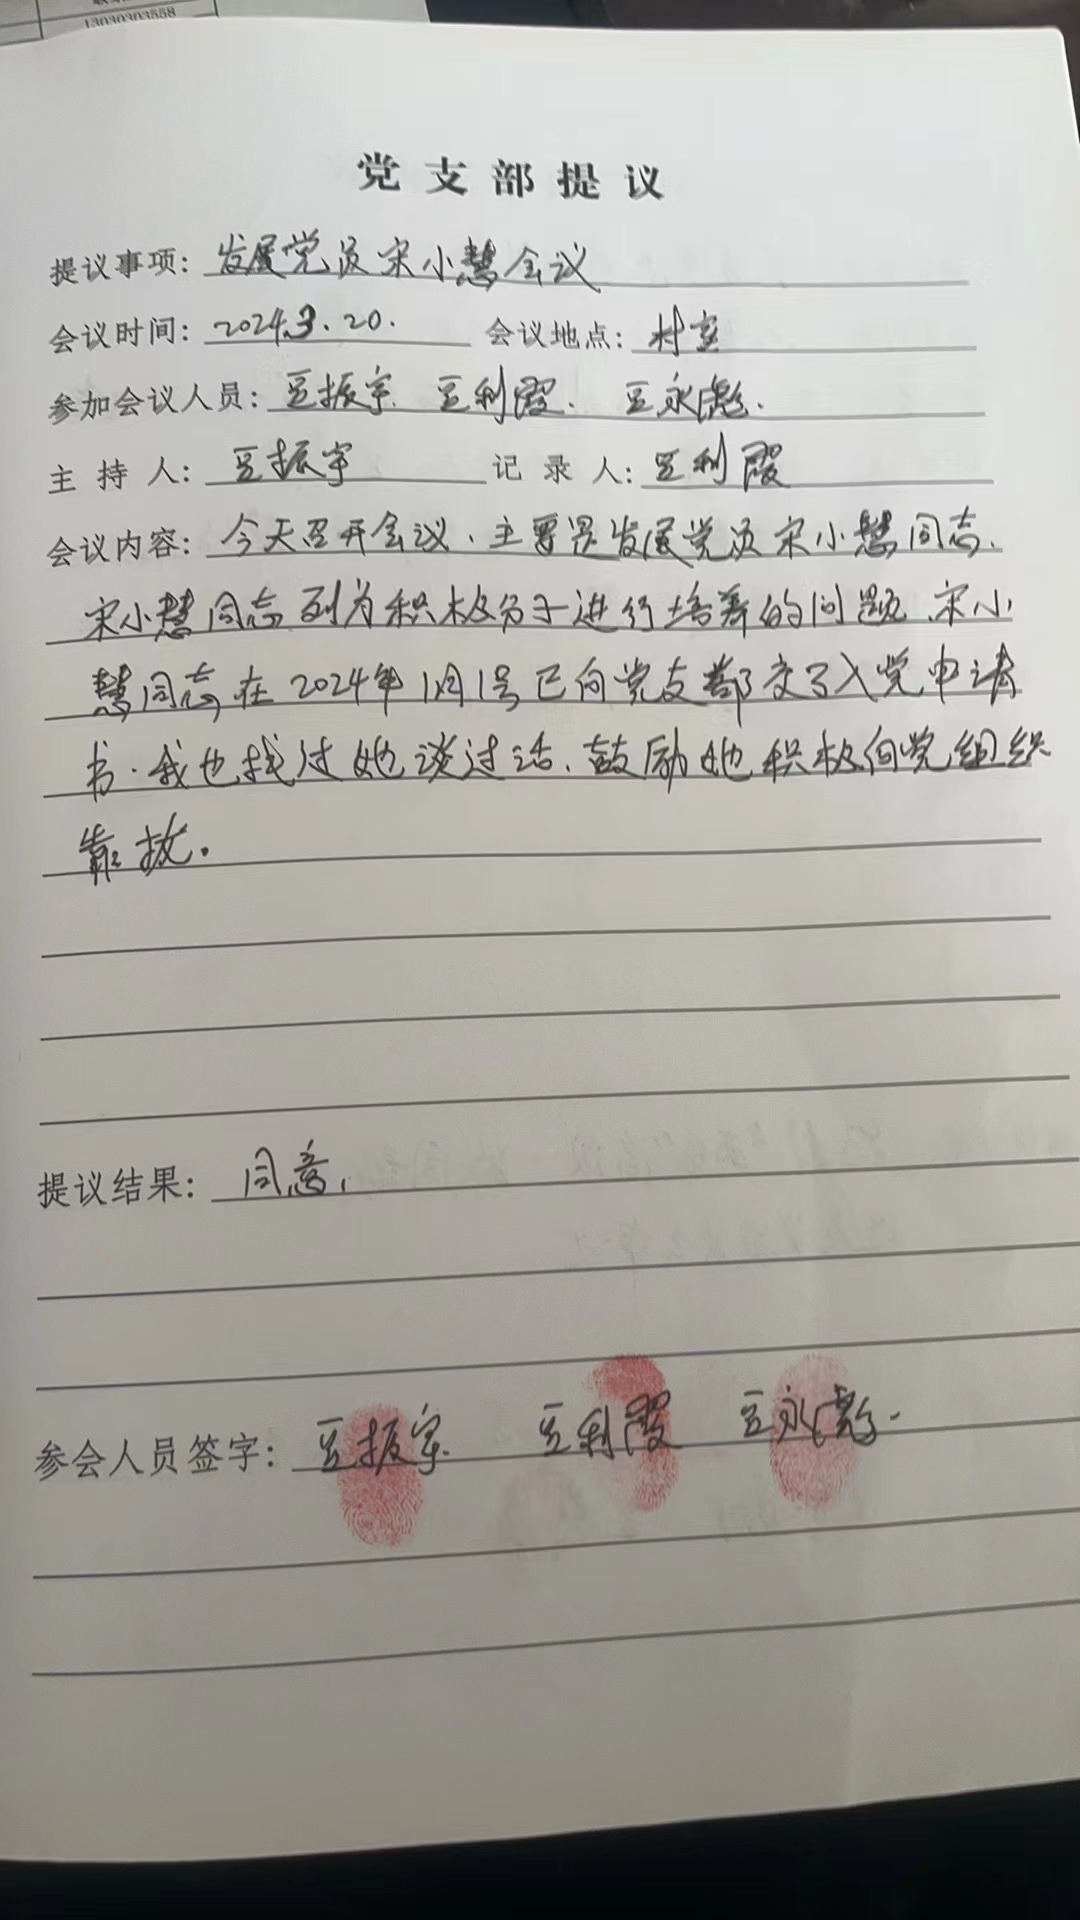 13030303558
党支部提议
提议事项：发展党员宋小慧会议
会议时间：2024.3.20. 会议地点：村室
参加会议人员：豆振宇. 豆利霞. 豆永彪.
主持人：豆振宇 记录人：豆利霞
会议内容：今天召开会议、主要是发展党员宋小慧同志、
宋小慧同志列为积极分子进行培养的问题、宋小
慧同志在2024年1月1号已向党支部交了入党申请
书.我也找过她谈过话、鼓励她积极向党组织
靠拢。
提议结果：同意、
参会人员签字：豆振宇. 豆利霞 豆永彪.